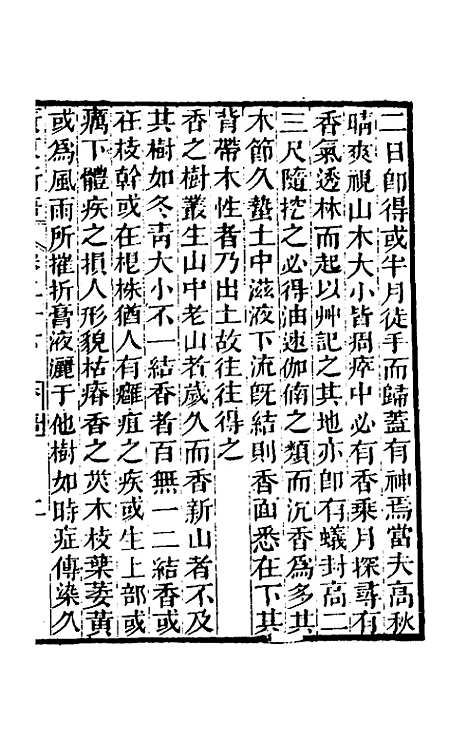 二日卽得或半月徒手而歸蓋有神焉當夫高秋
晴爽視山木大小皆凋瘁中必有香乘月探尋有
香氣透林而起以艸記之其地亦卽有蟻封高二
三尺隨挖之必得油速伽倆之類而沉香爲多其
木節久蟄土中滋液下流旣結則香面悉在下其
背帶木性者乃出土故往往得之
香之樹叢生山中老山者歲久而香新山者不及
其樹如冬靑大小不一結香者百無一二結香或
在枝幹或在根株猶人有癰疽之疾或生上部或
癘下體疾之損人形貌枯瘠香之灾木枝葉萎黃
或爲風雨所摧折膏液灑于他樹如時症傳染久